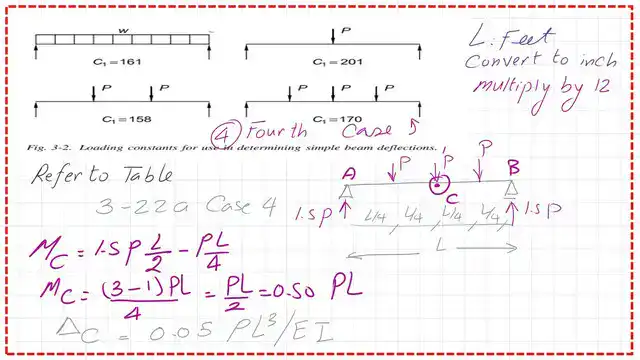 w
C₁ = 161
P
C₁ = 201
P P
C₁ = 158
P P P
C₁ = 170
L: Feet
Convert to inch
multiply by 12
④ Fourth Case
Fig. 3-2. Loading constants for use in determining simple beam deflections.
Refer to Table
3-22a Case 4
A P P P B
C
1.5P L/4 L/4 L/4 L/4 1.5P
L
M_C = 1.5 P L/2 - PL/4
M_C = (3-1)PL/4 = PL/2 = 0.50 PL
Δ_C = 0.05 PL³/EI